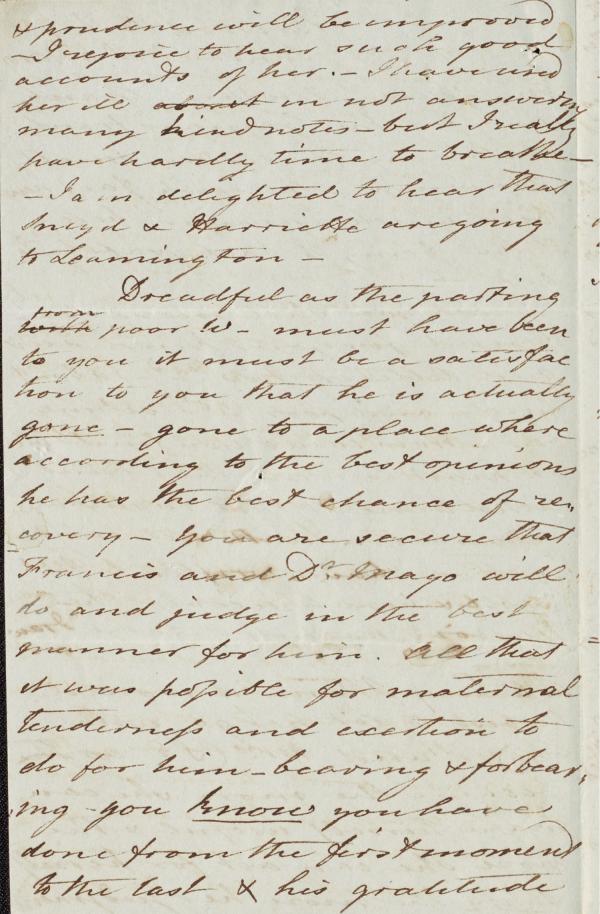 & prudence will be improved
- I rejoice to hear such good
accounts of her. - I have used
her ill about in not answering
many kind notes - but I really
have hardly time to breathe -
- I am delighted to hear that
Sneyd & Harriette are going
to Leamington -
Dreadful as the parting
from
with poor W - must have been
to you it must be a satisfac
tion to you that he is actually
gone - gone to a place where
according to the best opinions
he has the best chance of re=
covery - You are secure that
Francis and Dr. Mayo will
do and judge in the best
manner for him. All that
it was possible for maternal
tenderness and exertion to
do for him - bearing & forbear=
ing - you know you have
done from the first moment
to the last & his gratitude